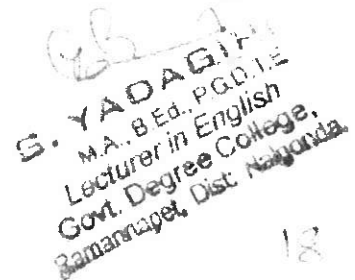 S. YADAGIRI
M.A., B.Ed., P.G.D.T.E
Lecturer in English
Govt. Degree College,
Ramannapet, Dist: Nalgonda.
18